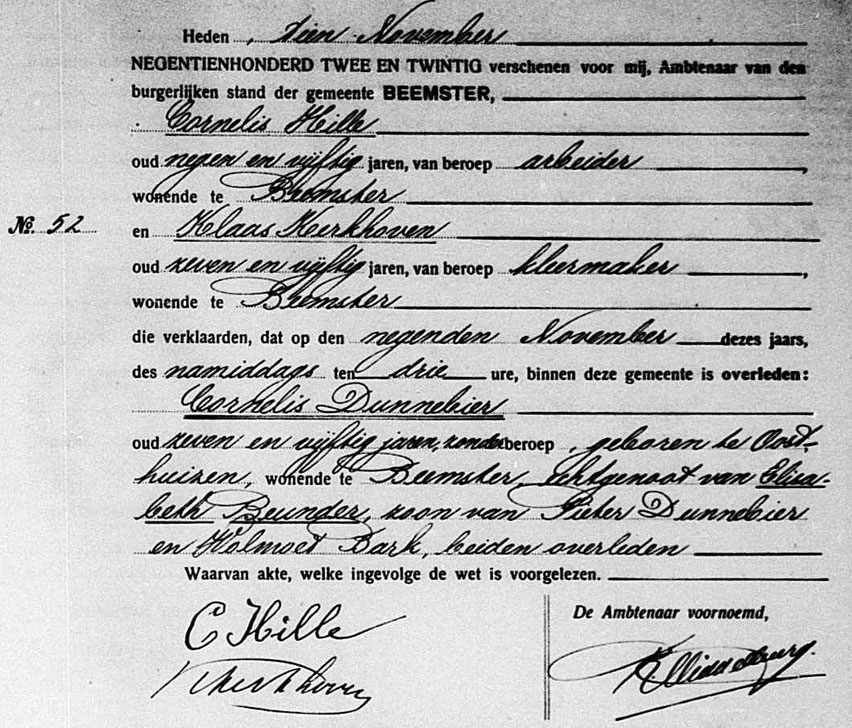 Heden, tien November
NEGENTIENHONDERD TWEE EN TWINTIG verschenen voor mij, Ambtenaar van den
burgerlijken stand der gemeente BEEMSTER,
Cornelis Hille
oud negen en vijftig jaren, van beroep arbeider,
wonende te Beemster
No. 52 en Klaas Kerkhoven
oud zeven en vijftig jaren, van beroep kleermaker,
wonende te Beemster
die verklaarden, dat op den negenden November dezes jaars,
des namiddags ten drie ure, binnen deze gemeente is overleden:
Cornelis Dunnebier
oud zeven en vijftig jaren, zonder beroep, geboren te Oost-
huizen, wonende te Beemster, echtgenoot van Elisa-
beth Beunder, zoon van Pieter Dunnebier
en Wolmoet Bark, beiden overleden
Waarvan akte, welke ingevolge de wet is voorgelezen.
C Hille
De Ambtenaar voornoemd,
K Kerkhoven